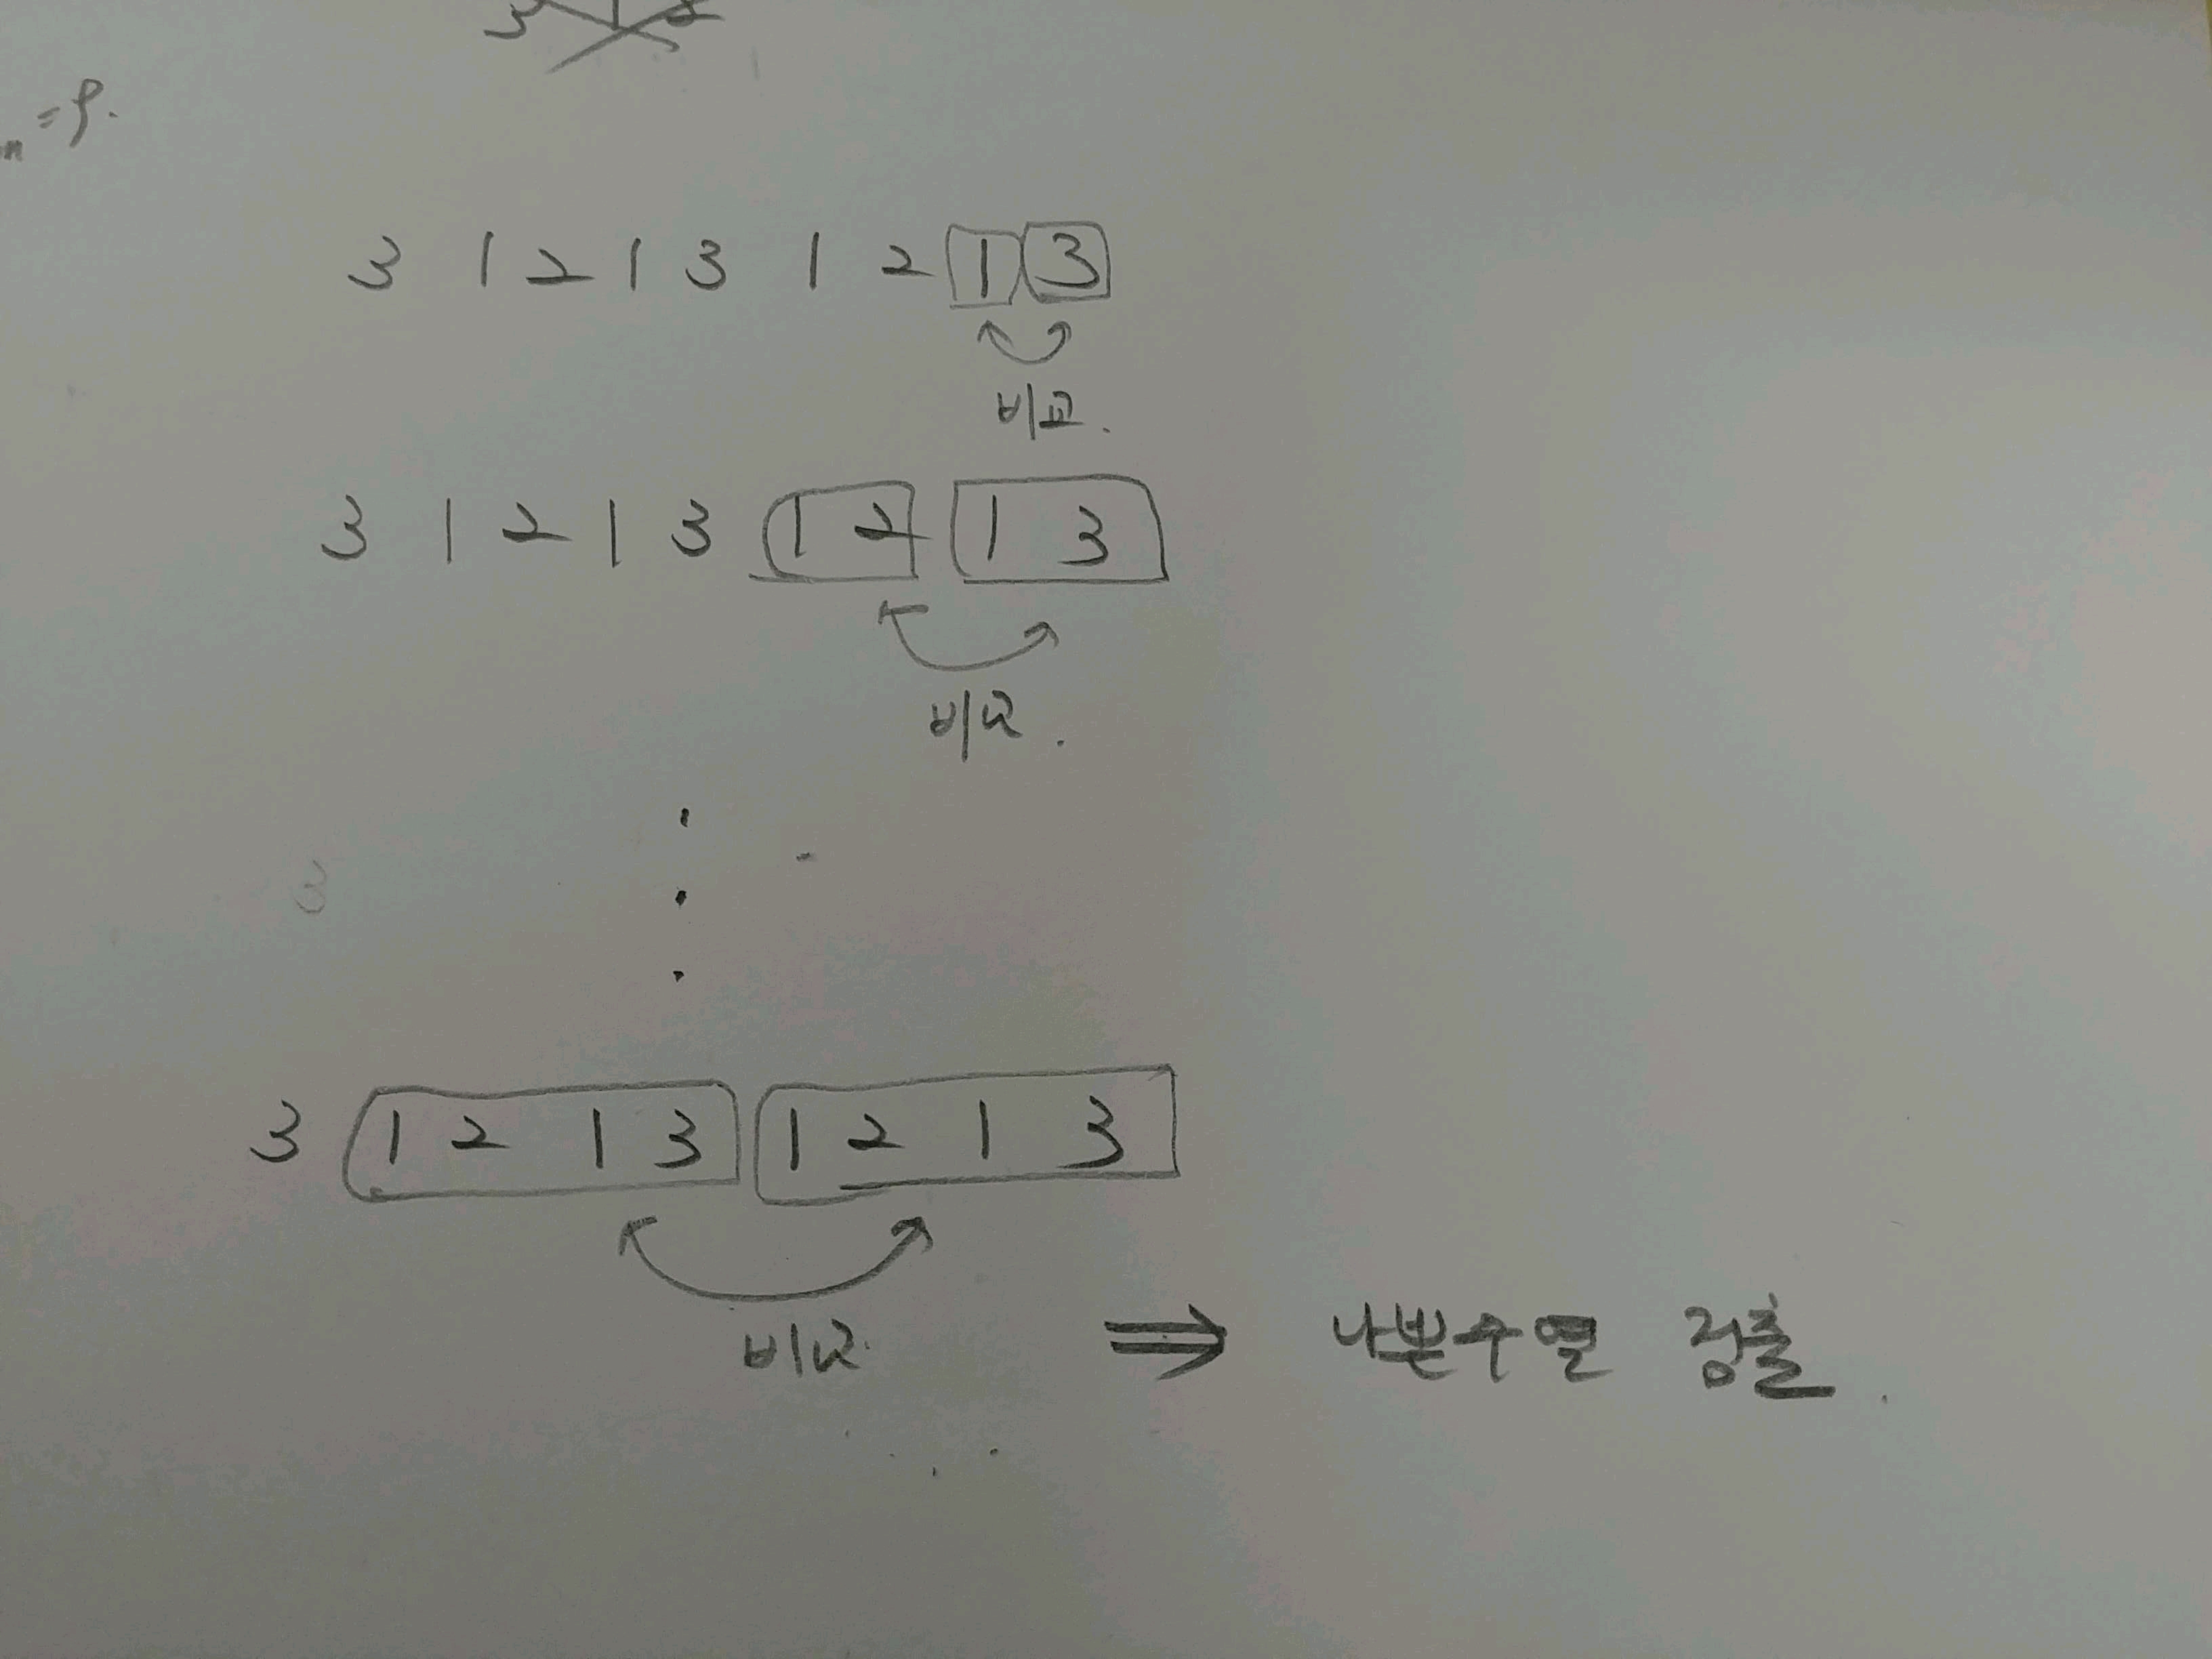 = 9.
3 1 2 1 3 1 2 1 3
비교.
3 1 2 1 3 1 2 1 3
비교.
3
3 1 2 1 3 1 2 1 3
비교.
⇒ 나쁜수열 검출.